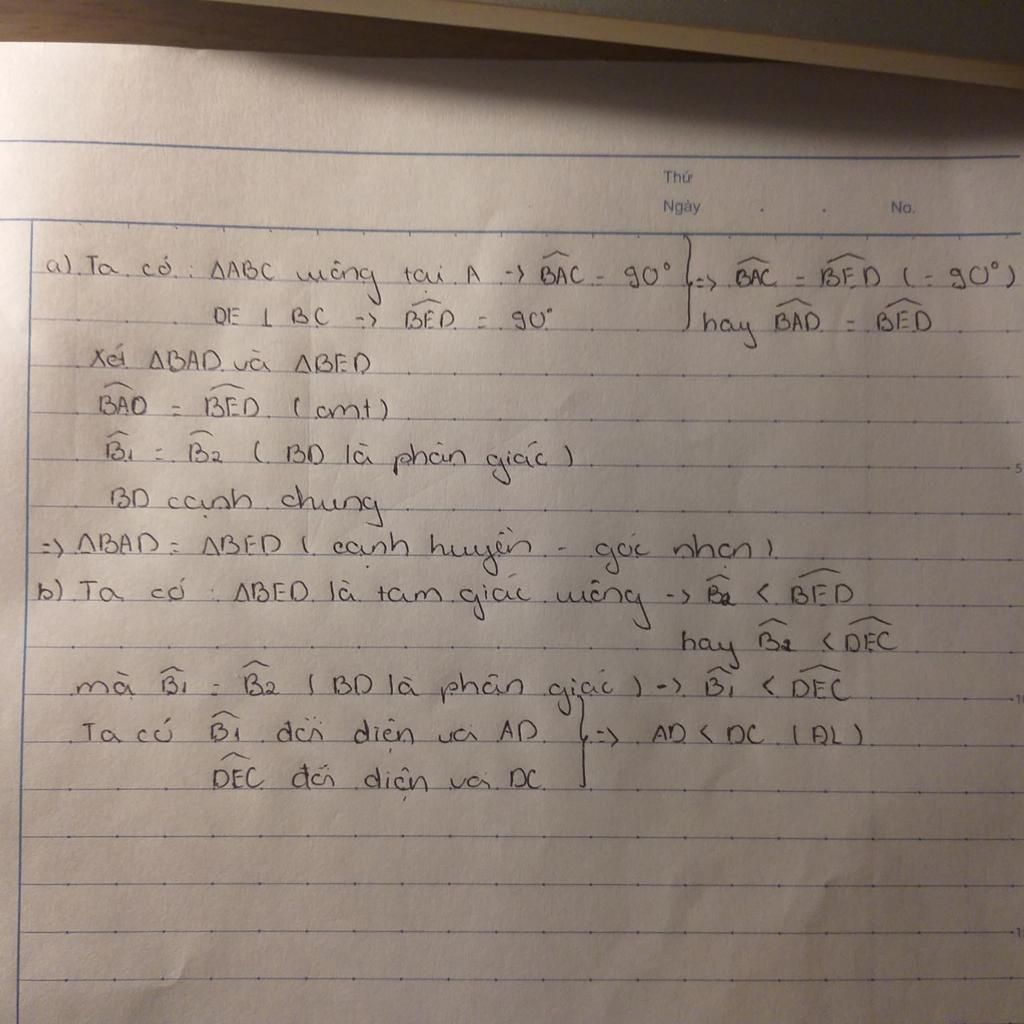 Thứ
Ngày . . No.
a) Ta có : ΔABC vuông tại A → \widehat{BAC} = 90° } => \widehat{BAC} = \widehat{BED} ( = 90°)
DE ⊥ BC → \widehat{BED} = 90° hay \widehat{BAD} = \widehat{BED}
Xét ΔBAD và ΔBED
\widehat{BAD} = \widehat{BED} (cmt)
\widehat{B₁} = \widehat{B₂} ( BD là phân giác ) 5
BD cạnh chung
=> ΔBAD = ΔBED ( cạnh huyền - góc nhọn )
b) Ta có : ΔBED là tam giác vuông → \widehat{B₂} < \widehat{BED}
hay \widehat{B₂} < \widehat{DEC}
mà \widehat{B₁} = \widehat{B₂} ( BD là phân giác ) → \widehat{B₁} < \widehat{DEC}
Ta có \widehat{B₁} đối diện với AD } => AD < DC (ĐL)
\widehat{DEC} đối diện với DC